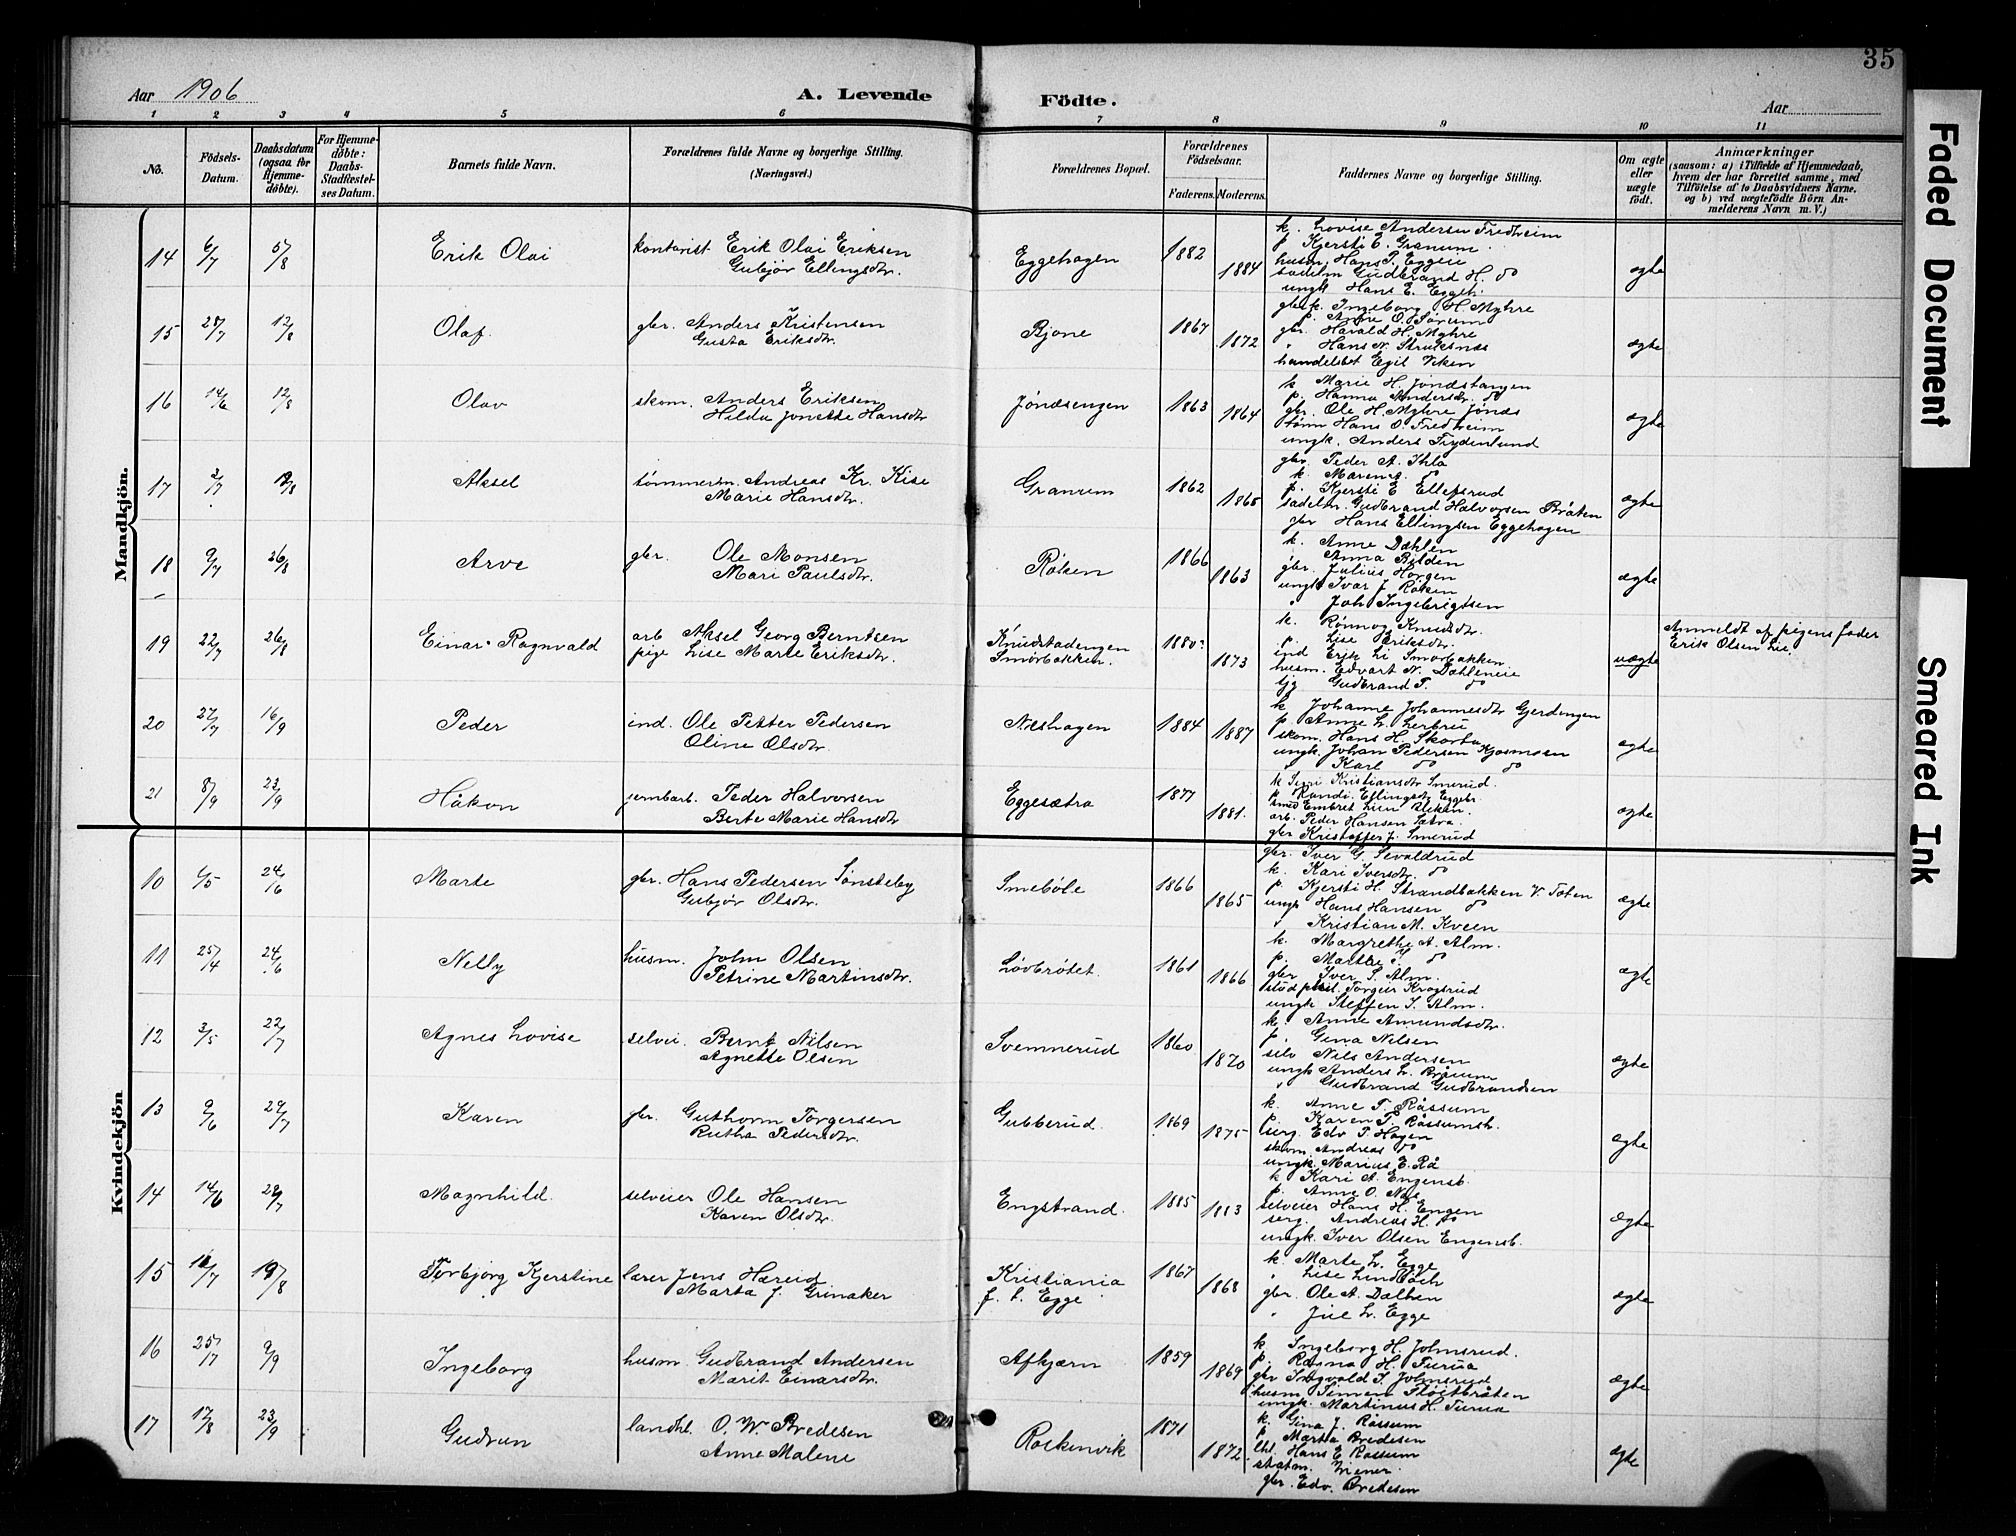 35
Aar 1906
A. Levende
Födte.
Aar
1 2 3 4 5 6 7 8 9 10 11
No.
Födsels-Datum.
Daabsdatum (ogsaa for Hjemme-döbte).
For Hjemme-döbte: Daabs-Stadfæstel-ses Datum.
Barnets fulde Navn.
Forældrenes fulde Navne og borgerlige Stilling. (Næringsvei.)
Forældrenes Bopæl.
Forældrenes Födselsaar.
Faderens. Moderens.
Faddernes Navne og borgerlige Stilling.
Om ægte eller uægte födt.
Anmærkninger
(saasom: a) i Tilfælde af Hjemmedaab, hvem der har forrettet samme, med Tilföielse af to Daabsvidners Navne, og b) ved uægtefödte Börn An-melderens Navn m. V.)
Mandkjön.
14 6/7 5/8 Erik Olai kontorist Erik Olai Eriksen
Gubjör Ellingsdtr. Eggehagen 1882 1884 ægte
k. Lovise Andersen Fredheim
p. Kjersti E. Granum
husm. Hans P. Eggeie
sadelm Gudbrand H. do
ungk Hans E. Eggeh.
15 28/7 12/8 Olaf. gbr. Anders Kristensen
Gusta Eriksdtr. Bjone 1867 1872 ægte
gbrk. Ingeborg H. Myhre
p. Anne O. Sörum
gbr. Harald H. Myhre
" Hans N. Struksnæs
handelsbet Egil Viken
16 14/6 12/8 Olav skom. Anders Eriksen
Hilda Jonette Hansdtr Jöndsengen 1863 1864 ægte
k. Marie H. Jöndstangen
p. Hanna Andersdr. do
gbr. Ole H. Myhre Jönds
tömm Hans O. Fredheim
ungk. Anders Frydenlund
17 2/7 12/8 Aksel tömmerm. Andreas Kr. Kise
Marie Hansdtr. Granum 1862 1865 ægte
gbr. Peder A. Ihle
k. Maren do
p. Kjersti E Ellefsrud
sadelm. Gudbrand Halvorsen Bråten
gbr Hans Ellingsen Eggehagen
18 9/7 26/8 Arve gbr. Ole Monsen
Mari Paulsdtr. Röken 1866 1863 ægte
k. Anne Dæhlen
" Anna Rilden
gbr. Julius Horgen
ungk Ivar J. Röken
" Joh Ingebrigtsen
19 22/7 26/8 Einar Ragnvald arb Aksel Georg Berntsen
pige Lise Marte Eriksdtr. Knudstadengen
Smörbakken. 1880 1873 uægte
k. Rönnog Knudsdtr.
p. Lise Eriksdtr.
ind Erik Li Smörbakken
husm. Edvart N. Dæhleneie
tjg Gudbrand T. do
Anmeldt af pigens fader
Erik Olsen Lie.
20 27/7 16/9 Peder ind. Ole Petter Pedersen
Oline Olsdtr. Næshagen 1884 1887 ægte
k Johanne Johannesdtr Gjerdingen
p. Anne L. Lerbru
skom. Hans H. Skorta
ungk. Johan Pedersen Kjosmoen
" Karl do do
21 8/9 23/9 Håkon jernbarb. Peder Halvorsen
Berte Marie Hansdtr Eggesætra 1877 1881. ægte
k Siri Kristiansdtr Smerud.
p Randi Ellingsdtr Eggebr.
smed Embret Lien Viken.
arb. Peder Hansen Sætra.
gbr Kristoffer J. Smerud
Kvindekjön
10 6/5 24/6 Marte gbr. Hans Pedersen Sönsteby
Gubjör Olsdtr. Smeböle 1866 1865 ægte
gbr. Iver G. Sevaldrud
k. Kari Iversdtr. do
p. Kjersti H. Strandbakken V. Toten
ungk Hans Hansen do
" Kristian M. Kveen
11 25/4 24/6 Nelly husm. John Olsen
Petrine Martinsdtr. Lövbrötet. 1861 1866 ægte
k. Margrethe A. Alm.
p. Marthe I. do
gbr Iver S. Alm.
stud phil. Torgeir Krogsrud
ungk Steffen I. Alm.
12 3/5 22/7 Agnes Lovise selvei Bernt Nilsen
Agnette Olsen Svemnerud 1860 1870 ægte
k. Anne Amundsdtr.
p. Gina Nilsen
selv Nils Andersen
ungk Anders L. Bråum
" Gudbrand Gudbrandsen
13 9/6 29/7 Karen gbr. Guthorm Torgersen
Rutha Pedersdtr. Gubberud. 1869 1875 ægte
k. Anne T. Råssum
p. Karen P. Råssumsh.
serg. Edv P. Hagen
skom. Andreas do
ungk. Marius E. Rå
14 14/6 29/7 Magnhild. selveier Ole Hansen
Karen Olsdtr. Engstrand. 1885 1883 ægte
k Kari A. Engensb.
p. Anne O. Næs
selveier Hans H. Engen
serg. Andreas H. do
ungk. Iver Olsen Engensb.
15 18/7 19/8 Torbjörg Kjerstine lærer Jens Hæreid
Marta J. Grinaker Kristiania
f. t. Egge 1867 1868 ægte
k. Marte L. Egge
" Lise Lindbäch
gbr. Ole A. Dælhen
" Juel L. Egge
16 25/7 9/9 Ingeborg husm. Gudbrand Andersen
Marit Einarsdtr. Afkjærn 1859 1869 ægte
k. Ingeborg H. Johnsrud.
p. Ragna H. Turua
gbr Ingvald I. Johnsrud
husm Simen Flöitbråten
ungk. Martinus H. Turua
17 17/8 23/9 Gudrun landhl. O. W. Bredesen
Anne Malene Rockenvik 1871 1872 ægte
k. Gina J. Råssum
p Marta Bredesen
lhl. Hans E Råssum
gbr. Edv. Bredesen
Faded Document
Smeared Ink